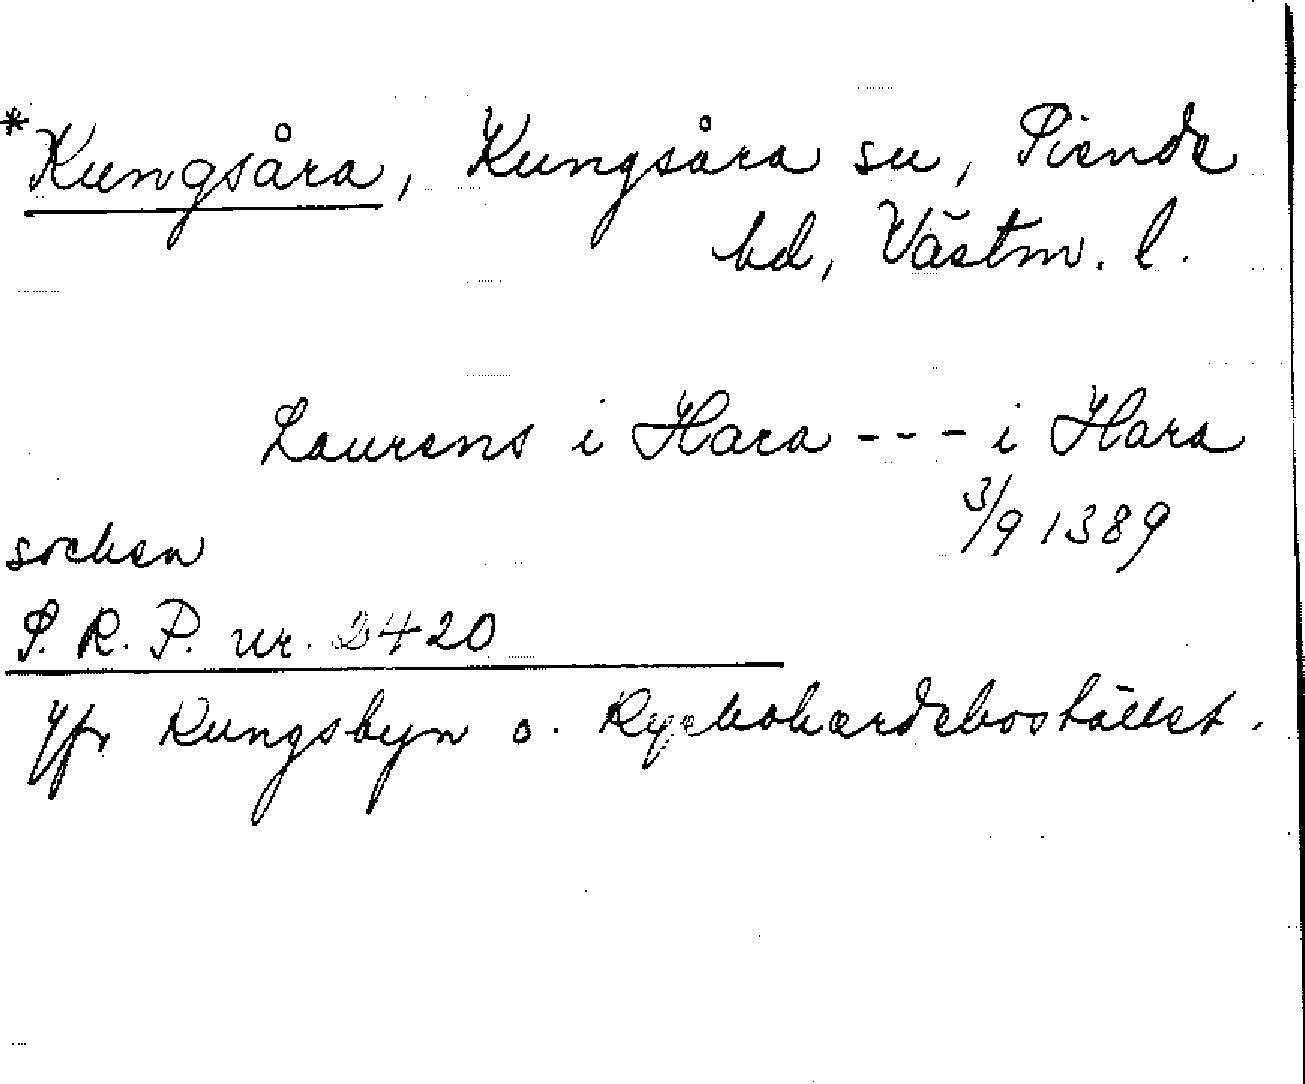 *Kungsåra, Kungsåra sn, Siende
hd, Västm. l.
Laurens i Hara --- i Hara
3/9 1389
socken
S. R. P. nr. 2420
Jfr Kungsbyn o.